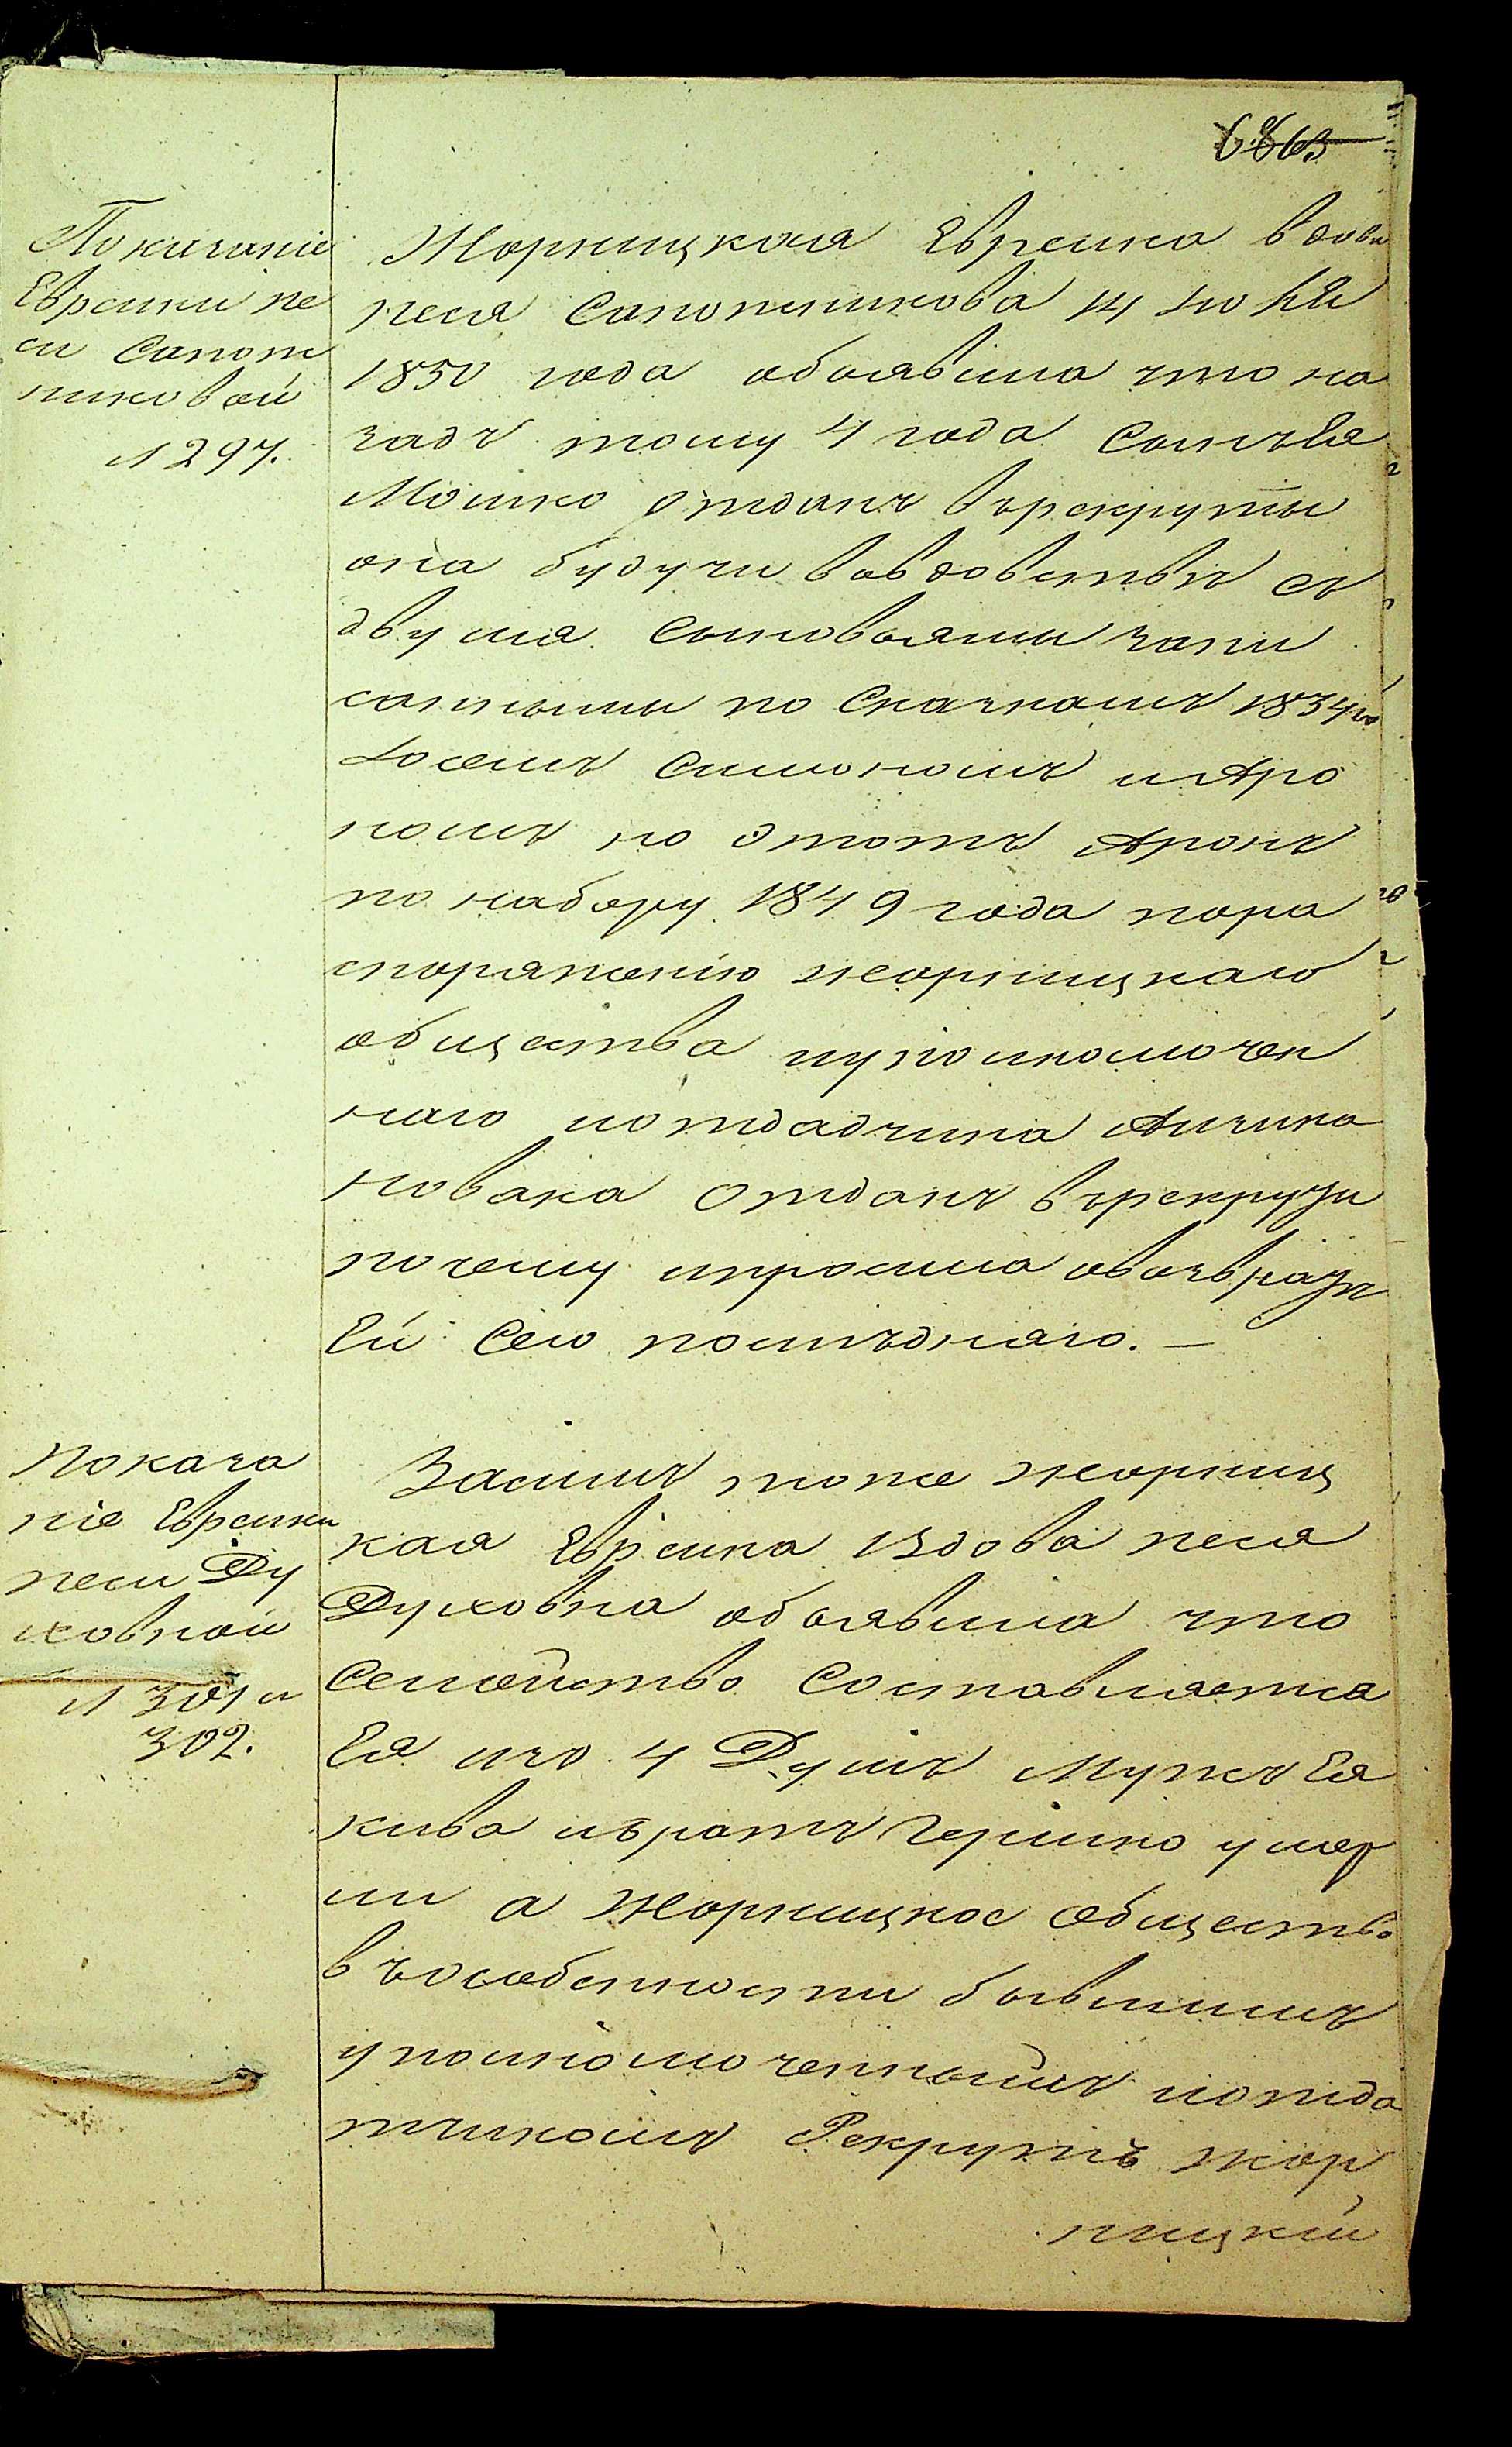 Показаніе
Еврейки Пе
си Сапож
никовой
л 297.
Жорницкая Еврейка вдова
песя Сапожникова 14 Іюня
1850 года объявила что на
задъ тому 4 года Сынъ Ея
Мошко отданъ въ рекруты
она будучи вовдовствѣ съ
двумя Сыновьями запи
санными по Сказкамъ 1834 го
Іосемъ Симономъ и Аро
номъ но этотъ Аронъ
по набору 1849 года пора
споряженію жорницкаго
общества и уполномочен
наго и отдатчика
новака Отданъ въ рекруты
почему и просила овозвратѣ
Ей Сего послѣдняго. —
Показа
ніе Еврейки
песи Ду
ховной
л 301 и
302.
Засимъ тоже жорниц
кая Еврейка Вдова песя
Духовна объявила что
Семейство Составляется
Ея изо 4 Душъ Мужъ Ея
кива и братъ Гершко умер
ли а Жорницкое Общество
въ особенности бывшимъ
уполномоченнымъ и отда
тчикомъ Рекрутъ жор
ницкій